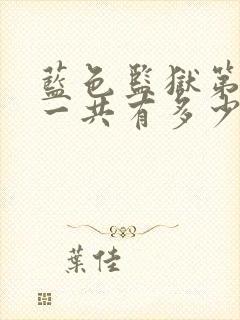 藍色監獄第
一共有多少
葉佳